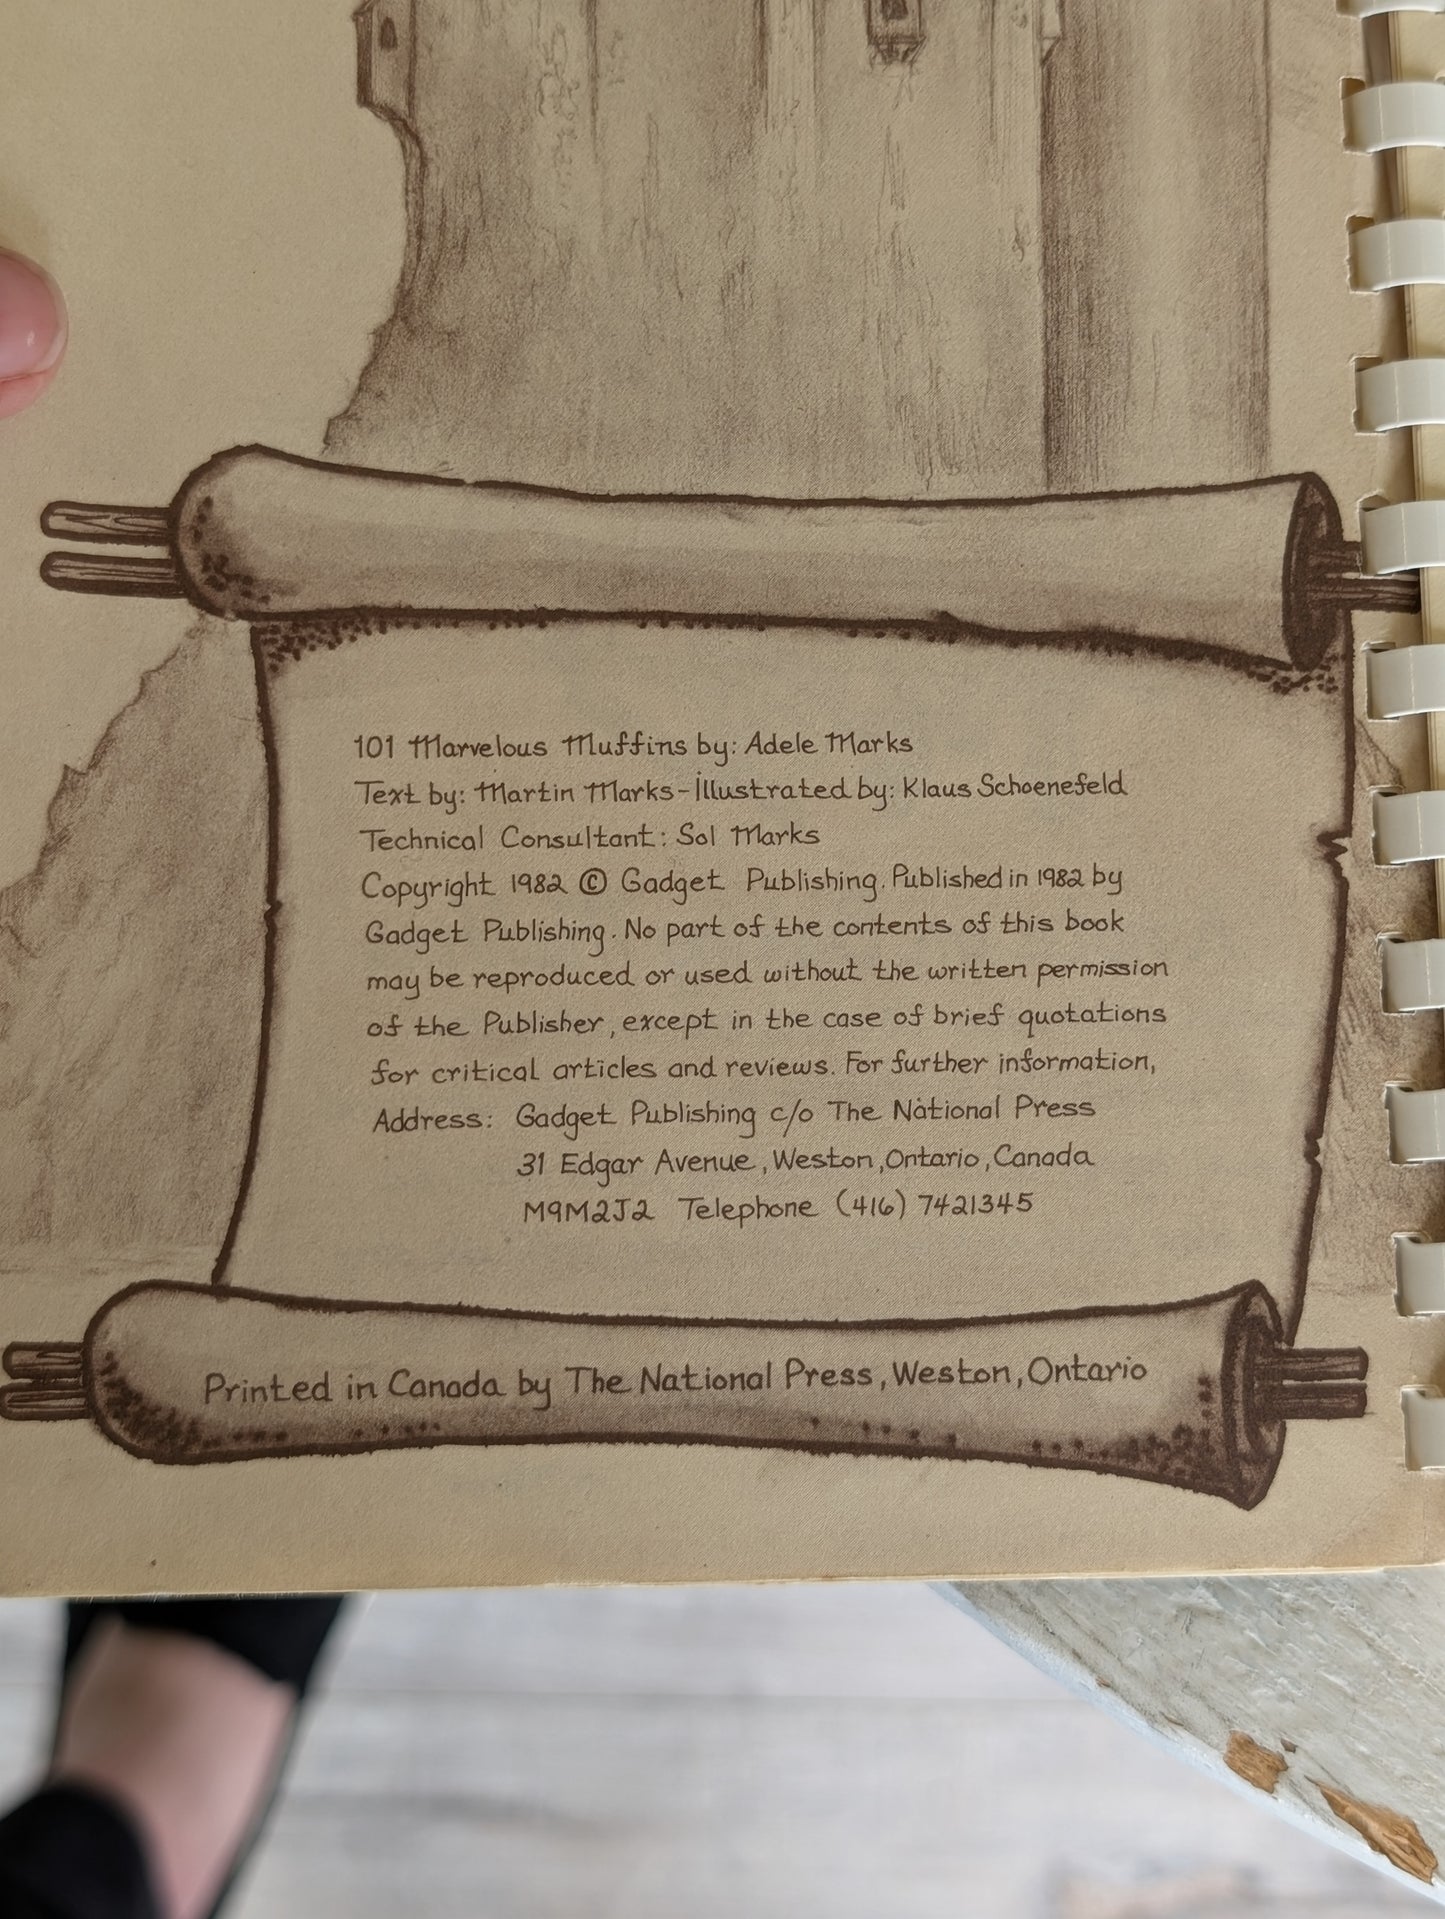 101 Marvelous Muffins by: Adele Marks
Text by: Martin Marks-Illustrated by: Klaus Schoenefeld
Technical Consultant: Sol Marks
Copyright 1982 © Gadget Publishing. Published in 1982 by
Gadget Publishing. No part of the contents of this book
may be reproduced or used without the written permission
of the Publisher, except in the case of brief quotations
for critical articles and reviews. For further information,
Address: Gadget Publishing c/o The National Press
31 Edgar Avenue, Weston, Ontario, Canada
M9M2J2 Telephone (416) 7421345
Printed in Canada by The National Press, Weston, Ontario